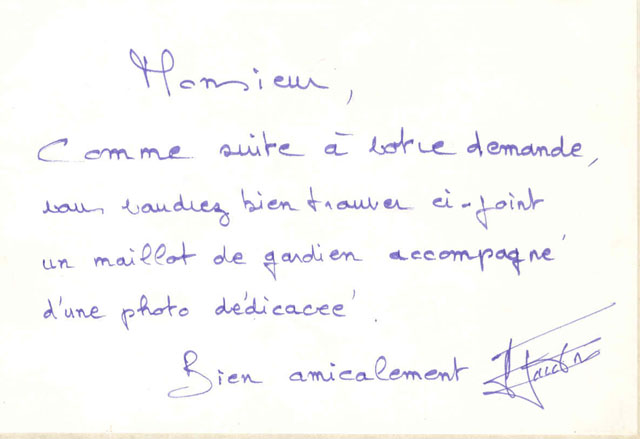 Monsieur,
Comme suite à votre demande,
vous voudrez bien trouver ci-joint
un maillot de gardien accompagné
d'une photo dédicacée.
Bien amicalement